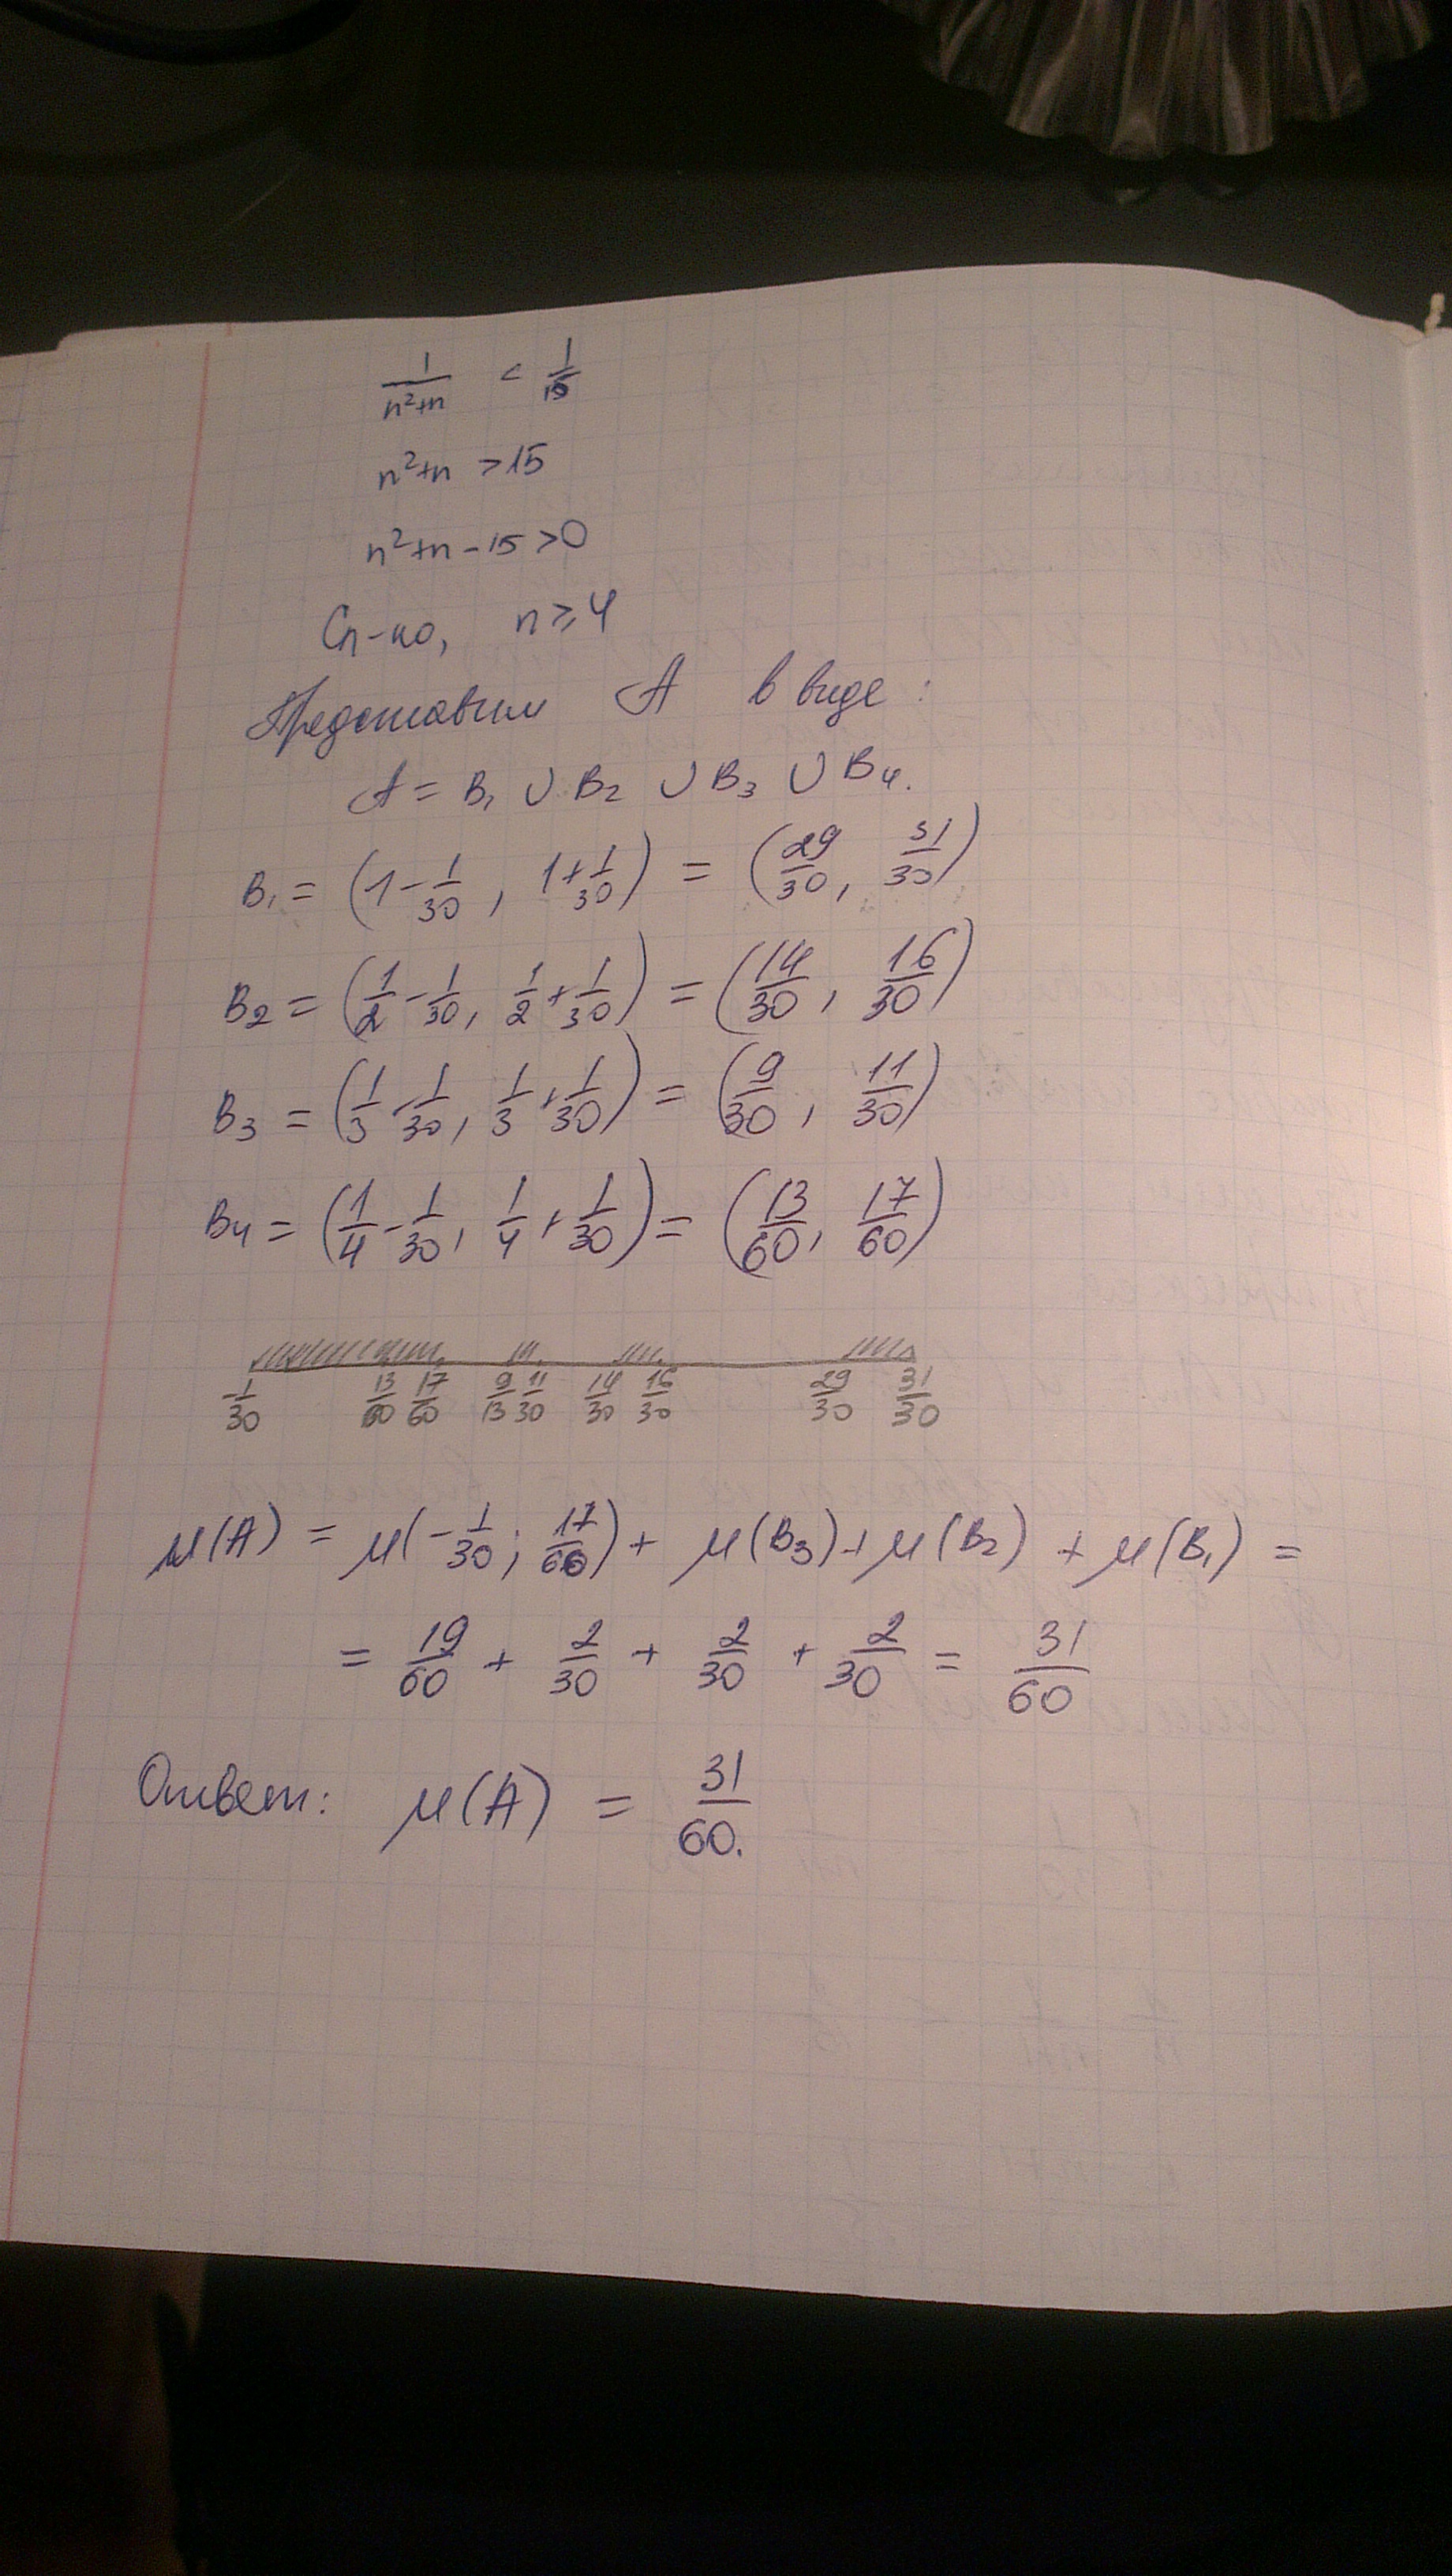 1/(n²+n) < 1/15
n²+n > 15
n²+n - 15 > 0
Сл-но, n ≥ 4
Представим A в виде:
A = B₁ ∪ B₂ ∪ B₃ ∪ B₄.
B₁ = (1 - 1/30, 1 + 1/30) = (29/30, 31/30)
B₂ = (1/2 - 1/30, 1/2 + 1/30) = (14/30, 16/30)
B₃ = (1/3 - 1/30, 1/3 + 1/30) = (9/30, 11/30)
B₄ = (1/4 - 1/30, 1/4 + 1/30) = (13/60, 17/60)
-1/30 13/60 17/60 9/13 11/30 14/30 16/30 29/30 31/30
μ(A) = μ(-1/30; 17/60) + μ(B₃) + μ(B₂) + μ(B₁) =
= 19/60 + 2/30 + 2/30 + 2/30 = 31/60
Ответ: μ(A) = 31/60.